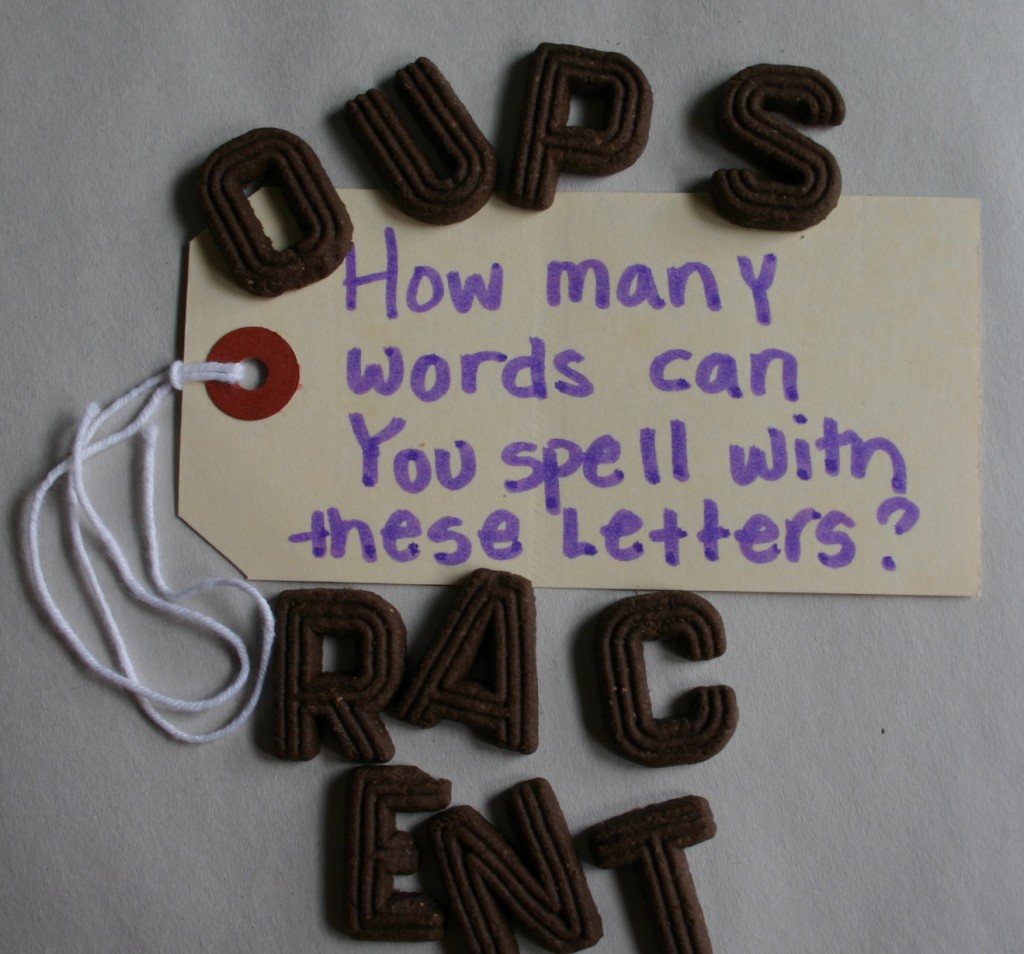 OUPS
How many
words can
You spell with
these Letters?
RAC
ENT